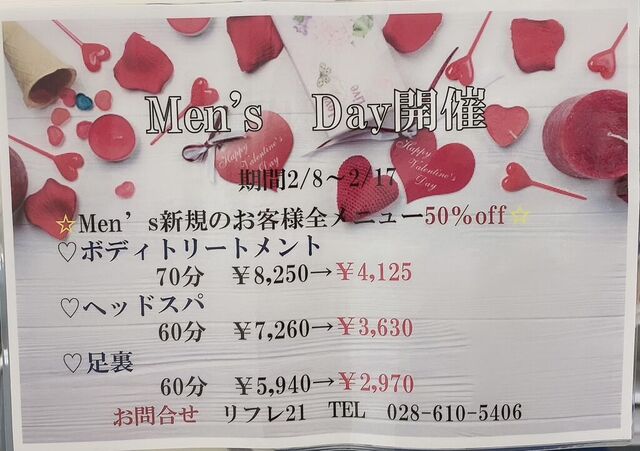 Men's Day開催
Happy
Valentine's
Day
Happy
Valentine's
Day
期間2/8～2/17
☆Men's新規のお客様全メニュー50%off☆
♡ボディトリートメント
70分 ￥8,250→￥4,125
♡ヘッドスパ
60分 ￥7,260→￥3,630
♡足裏
60分 ￥5,940→￥2,970
お問合せ リフレ21 TEL 028-610-5406